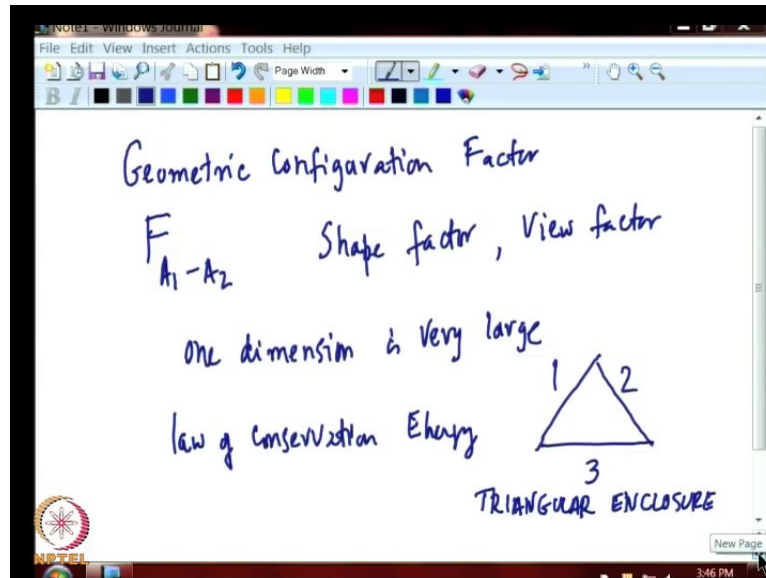 Note1 - Windows Journal
File Edit View Insert Actions Tools Help
Page Width
B I
Geometric Configuration Factor
F A1-A2 Shape factor, View factor
one dimension is very large
1 2
law of conservation Energy
3
TRIANGULAR ENCLOSURE
NPTEL
New Page
3:46 PM